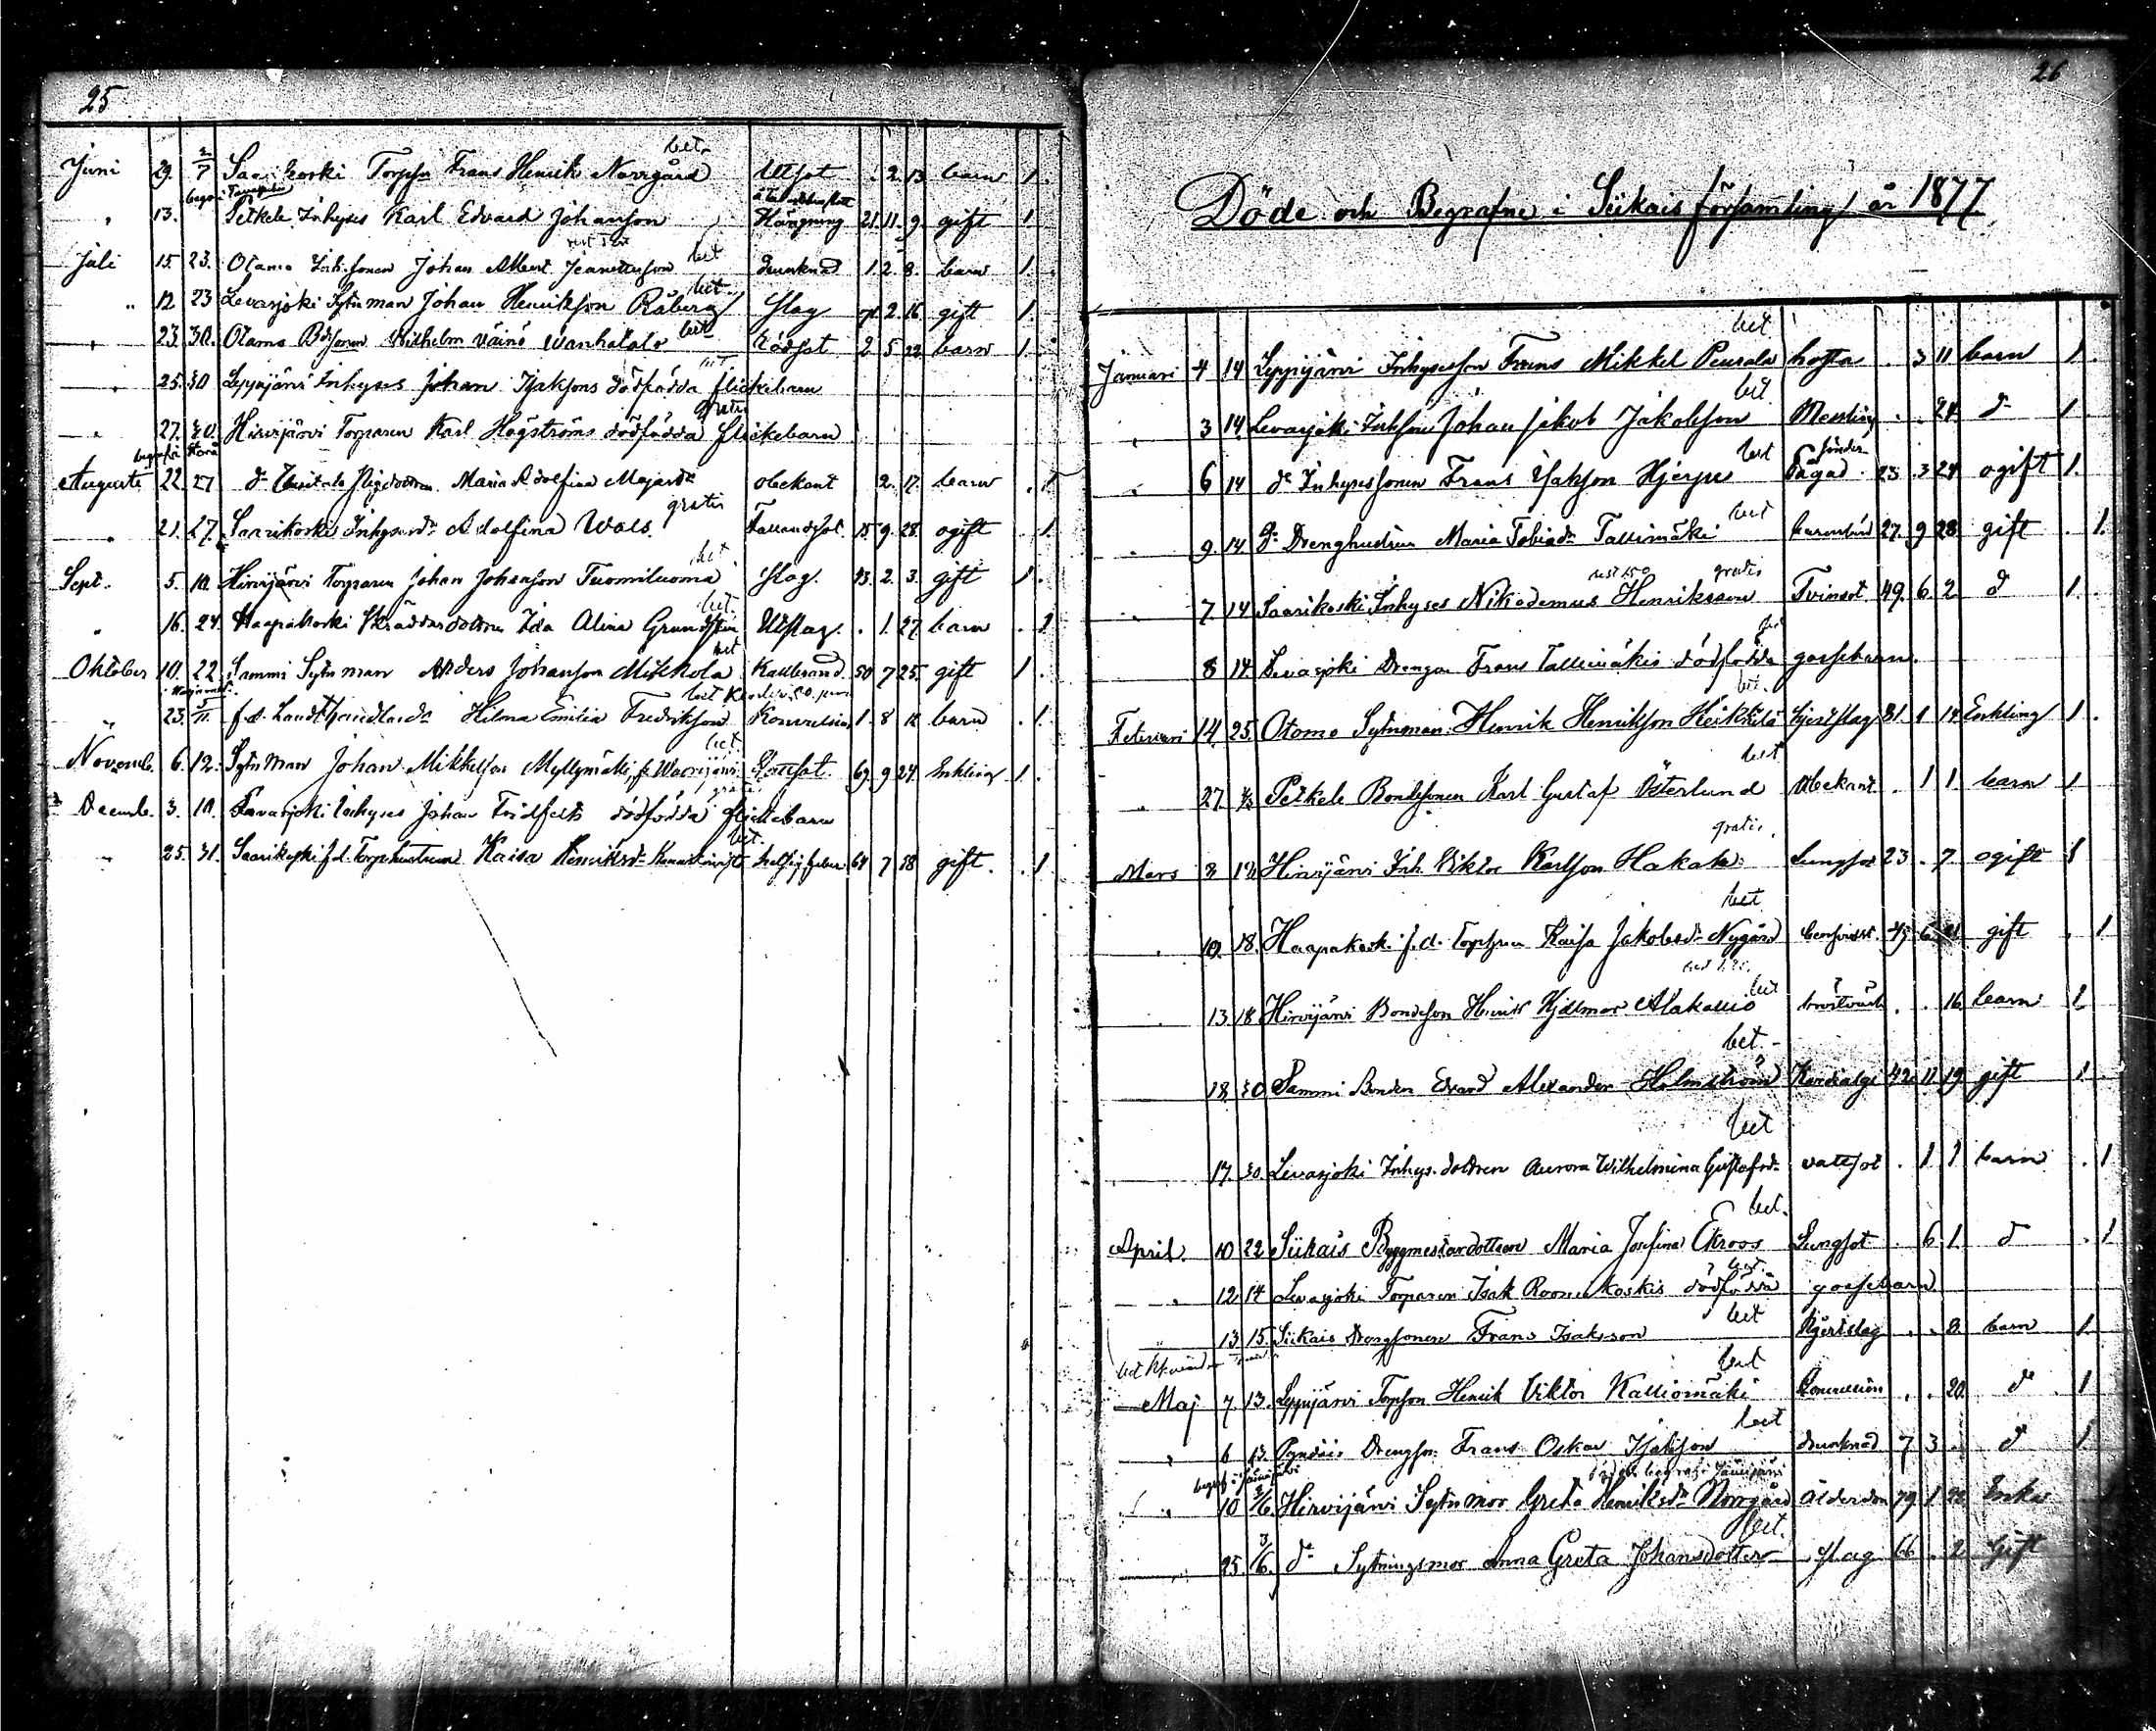 25
Juni 29. 2/7 Saarikoski Torpson Frans Henrik Norrgård bet. Utsot . 2. 13 barn 1.
" 13. Petkele Inhyses Karl Edvard Johanson Hängning 21. 11. 9. gift 1
Juli 15 23. Otamo Inh. sonen Johan Albert Jeanettesson bet drunknad 1. 2. 8. barn 1.
" 12 23 Levasjoki Sytn man Johan Henrikson Råberg bet. slag 71. 2. 16 gift 1.
" 23. 30. Otamo Bdsonen Wilhelm Väinö Wanhatalo bet Rödsot 2 5 22 barn 1.
" 25. 30 Leppijärvi Inhyses Johan Isaksons dödfödda flickebarn
" 27. 30. Hirvijärvi Torparen Karl Hägströms dödfödda flickebarn gratis
Augusti 22. 27 do Maria Adolfina obekant 2. 17. barn . 1
" 21. 27. Saarikoski Inhysesdr Adolfina Wals gratis Fallandesot. 15. 9. 28. ogift . 1
Sept. 5. 10. Hirvijärvi Torparen Johan Johanson Tuomiluoma bet slag. 43. 2. 3. gift 1.
" 16. 24. Haapakoski Skräddardottren Ida Alina Grundsten bet. Utslag. . 1. 27. barn . 1
Oktober 10. 22. Sammi Sytn man Anders Johanson Mikkola bet Kallbrand 50 7 25. gift 1.
" 23. 5/11. f.d. Hilma Emilia Fredrikson bet Konvulsion 1. 8 12 barn . 1.
Novemb. 6. 12. Sytn man Johan Mikkelson Myllymäki bet. 69. 9 24. Enkling 1.
Decemb. 3. 10. Levasjoki Inhyses Johan Fridfelts dödfödda flickebarn gratis
" 25. 31. Saarikoski f.d. Torphustrun Kaisa Henriksdr bet. 64 7 18 gift. . 1
26
Döde och Begrafne i Siikais församling år 1877
Januari 4 14 Leppijärvi Inhysesson Frans Mikkel Peurala bet hosta . 3 11 barn 1.
" 3 14. Levasjoki Inhson Johan Jakob Jakobson bet. Messling . . 24. do 1
" 6 14 do Inhysessonen Frans Isakson Hjerpe bet sönder Sågad 23. 3 24 ogift 1.
" 9. 14 do Drenghustrun Maria Tobiadr Tallimäki bet barnsbörd 27. 9 28 gift . 1.
" 7. 14 Saarikoski Inhyses Nikodemus Henriksson gratis Tvinsot 49. 6. 2 do 1.
8 14. Levasjoki Drengen Frans Tallimäkis dödfödda gossebarn.
Februari 14. 25. Otamo Sytnman Henrik Henrikson Heikkilä bet. hjertslag 81 1 14 Enkling 1.
" 27 4/3 Petkele Bondesonen Karl Gustaf Österlund bet Obekant . 1 1 barn 1
Mars 2 Hirvijärvi Inh. Viktor Karlson Hakala gratis. Lungsot 23 . 7. ogift 1
" 10. 18. Haapakoski f.d. Torphustrun Kaisa Jakobsdr Nygård bet 45 6 gift . 1
" 13. 18 Hirvijärvi Bondeson Henrik Hjalmar Alakallio bet . . 16. barn 1
18. 30 Sammi Bonden Edvard Alexander Holmström bet. Kardialgi 42. 11. 19. gift 1
17. 30. Levasjoki Inhys. dottren Aurora Wilhelmina Gustafsdr bet vattsot . 1 1 barn . 1
April. 10 22 Siikais Byggmestardottren Maria Josefina Ekroos bet. Lungsot . 6 1. do . 1
" 12. 14 Levasjoki Torparen Isak Roonenkoskis dödfödda bet. gossebarn
13. 15. Siikais Drengsonen Frans Isakson bet Hjertslag . . 8. barn 1.
Maj 7. 13. Leppijärvi Torpson Henrik Viktor Kalliomäki bet Konvulsion . . 20. do 1
" 6 13. Drengson Frans Oskar Isakson bet drunknad 7 3 . do 1
" 10 3/6. Hirvijärvi Sytn mor Greta Henriksdr Norrgård Ålderdom 79. 1 22. Enka
25. 3/6. do Sytningsmor Anna Greta Johansdotter bet. slag 66 . 2 Gift